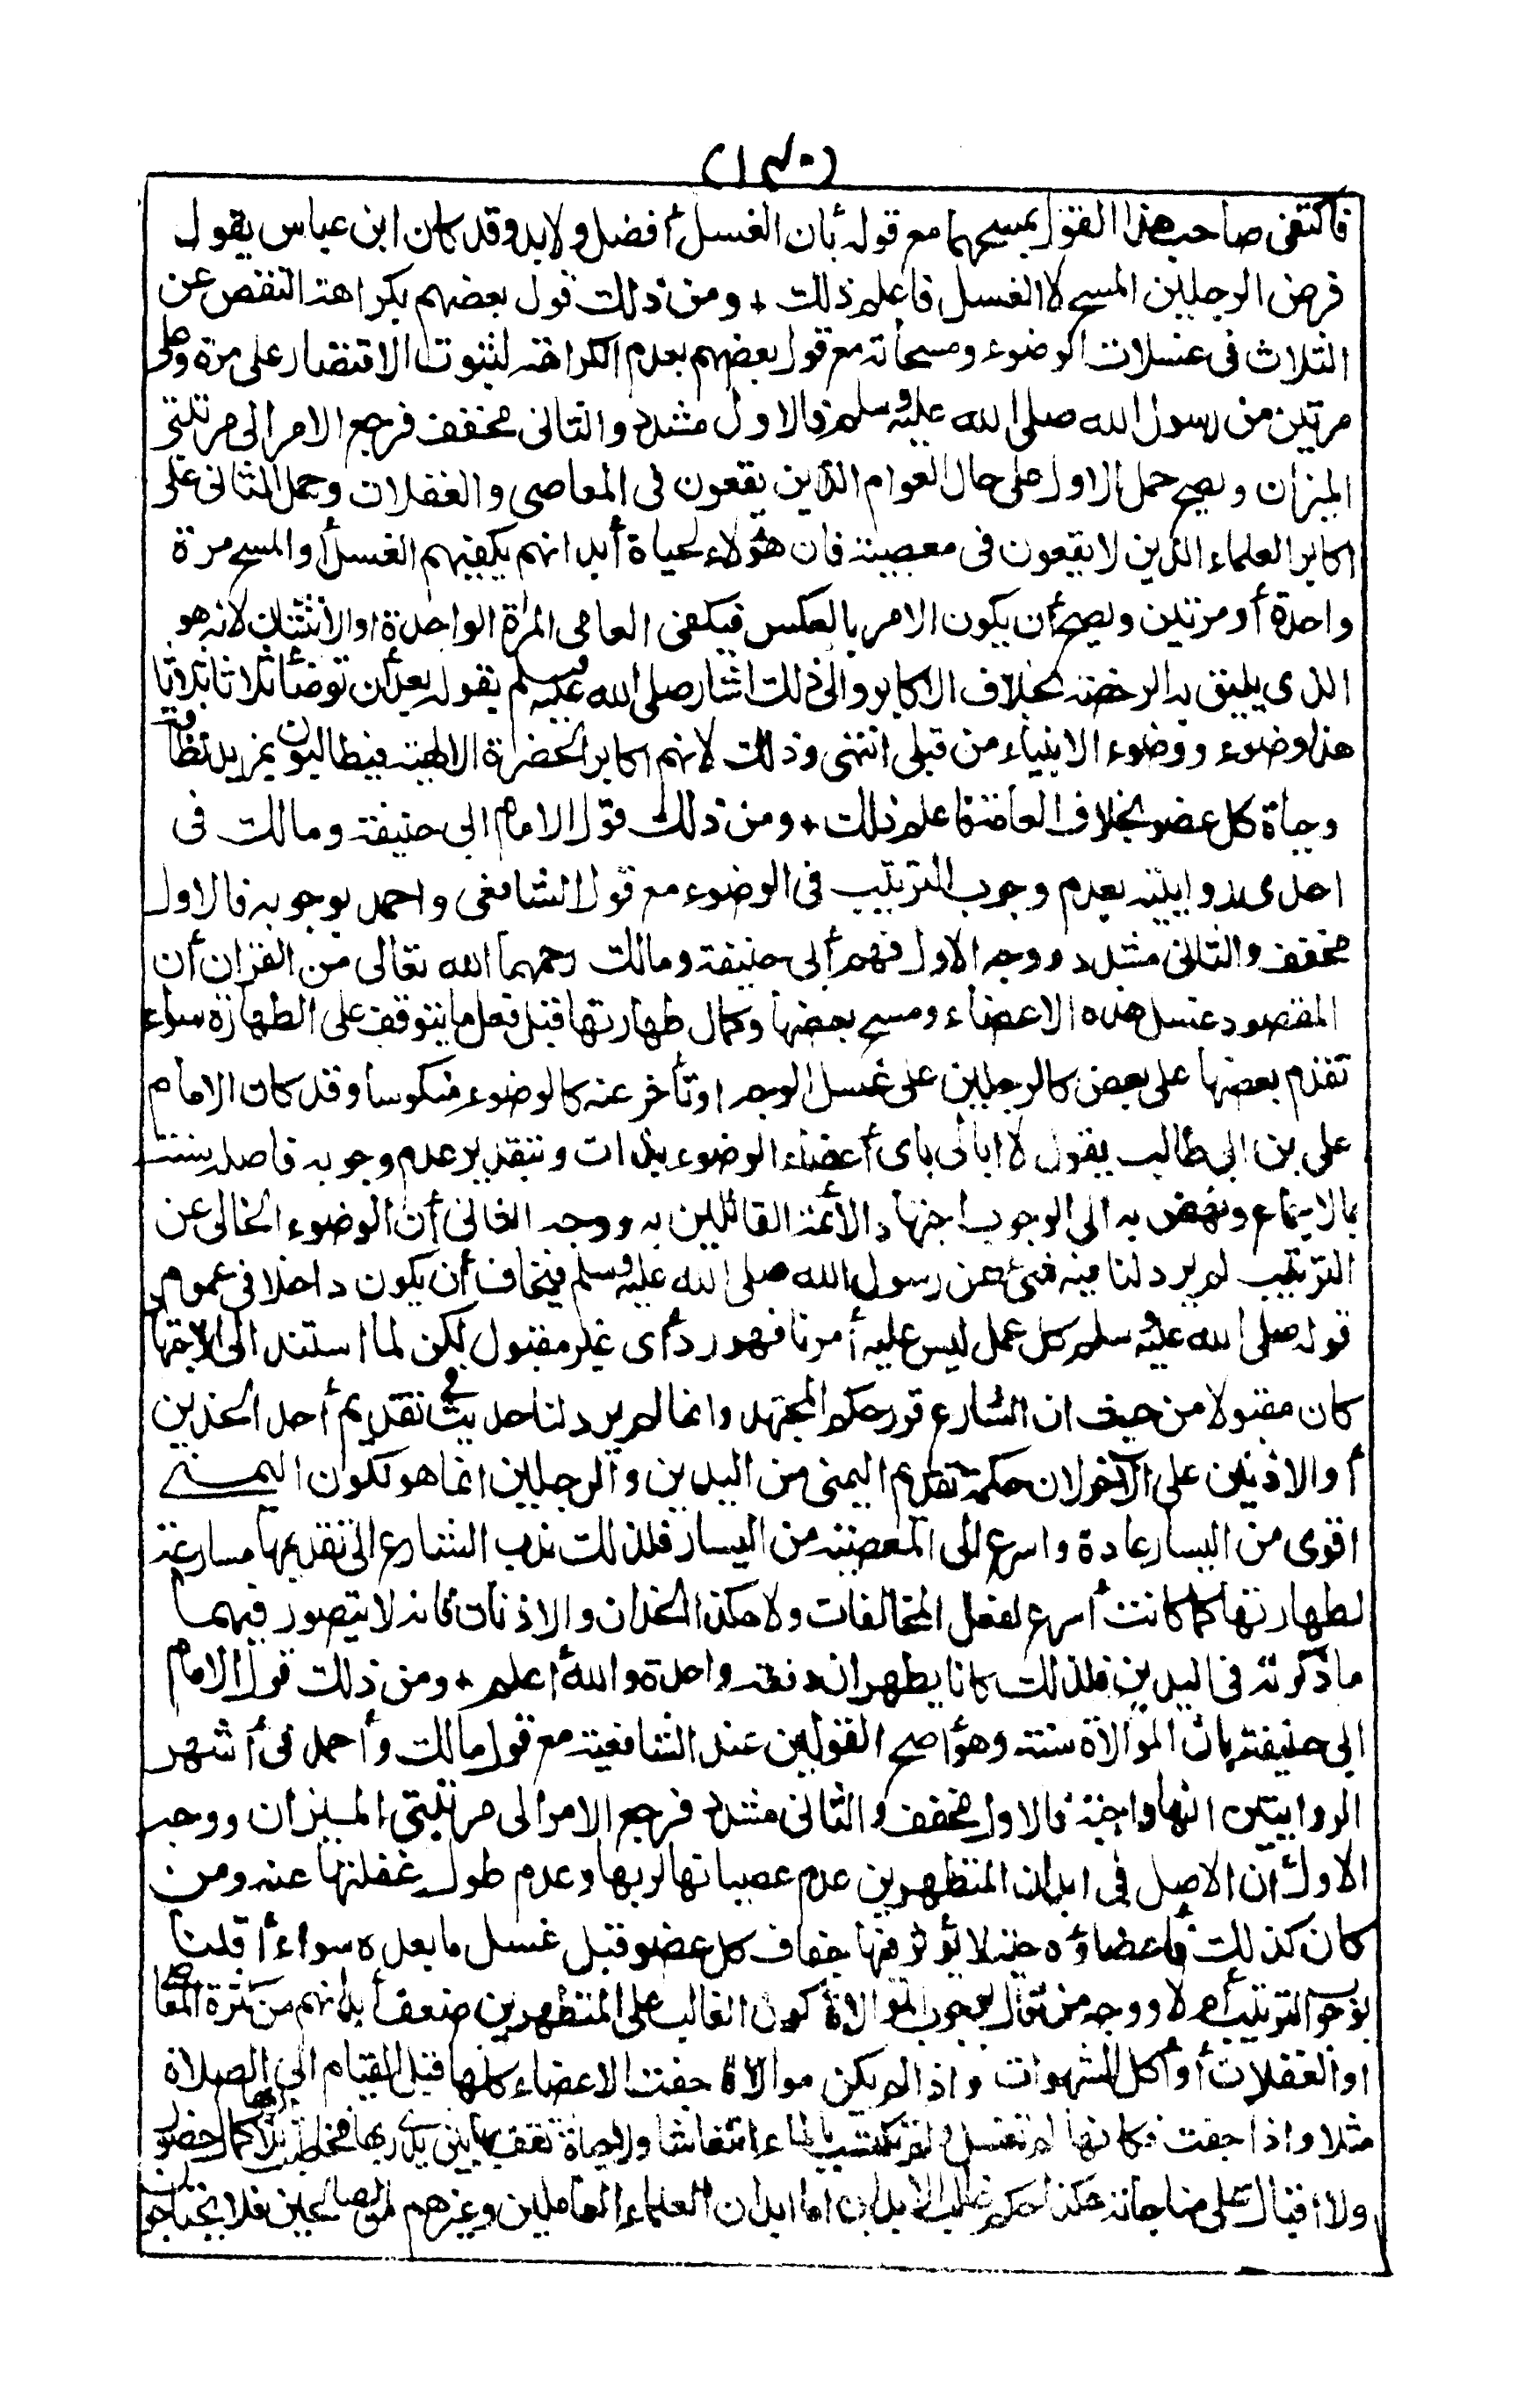 (١٣٠)
فاكتفى صاحب هذا القول بمسحهما مع قوله بأن الغسل أفضل ولا بد وقد كان ابن عباس يقول
فرض الرجلين المسح لا الغسل فاعلم ذلك + ومن ذلك قول بعضهم بكراهة النقص عن
الثلاث في غسلات الوضوء ومسحاته مع قول بعضهم بعدم الكراهة لثبوت الاقتصار على مرة وعلى
مرتين من رسول الله صلى الله عليه وسلم فالاول مشدد والثاني مخفف فرجع الامر الى مرتبتي
الميزان ويصح حمل الاول على حال العوام الذين يقعون في المعاصي والغفلات وحمل الثاني على
اكابر العلماء الذين لا يقعون في معصية فان هؤلاء لحياة أبدانهم يكفيهم الغسل أو المسح مرة
واحدة أو مرتين ويصح أن يكون الامر بالعكس فيكفى العامي المرة الواحدة او الاثنتان لانه هو
الذي يليق به الرخصة بخلاف الاكابر والى ذلك اشار صلى الله عليه وسلم بقوله بعد أن توضأ ثلاثا ثلاثا
هذا وضوء ووضوء الانبياء من قبلي انتهى وذلك لانهم اكابر الحضرة الالهية فيطالبون بمزيد نظافة
وحياة كل عضو بخلاف العامة فاعلم ذلك + ومن ذلك قول الامام ابى حنيفة ومالك في
احدى روايتيه بعدم وجوب الترتيب في الوضوء مع قول الشافعي واحمد بوجوبه فالاول
مخفف والثاني مشدد ووجه الاول فهم أبى حنيفة ومالك رحمهما الله تعالى من القرآن أن
المقصود غسل هذه الاعضاء ومسح بعضها وكمال طهارتها قبل فعل ما يتوقف على الطهارة سواء
تقدم بعضها على بعض كالرجلين على غسل الوجه اوتأخر عنه كالوضوء منكوسا وقد كان الامام
على بن ابى طالب يقول لا ابالى باى أعضاء الوضوء بدات وبتقدير عدم وجوبه فاصله سنة
بالاجماع ونهض به الى الوجوب اجتهاد الأئمة القائلين به ووجه الثانى أن الوضوء الخالى عن
الترتيب لم يرد لنا فيه شئ عن رسول الله صلى الله عليه وسلم فيخاف أن يكون داخلا في عموم
قوله صلى الله عليه وسلم كل عمل ليس عليه أمرنا فهو رد أى غير مقبول لكن لما استند الى الاجتهاد
كان مقبولا من حيث ان الشارع قرر حكم المجتهد وانما لم يرد لنا حديث في تقديم أحد الخدين
أو الاذنين على الآخر لان حكمة تقديم اليمنى من اليدين والرجلين انما هو لكون اليمنى
اقوى من اليسار عادة واسرع الى المعصية من اليسار فلذلك ندب الشارع الى تقديمها مسارعة
لطهارتها كما كانت أسرع لفعل المخالفات ولا هكذا الخدان والاذنان فانه لا يتصور فيهما
ما ذكرته في اليدين فلذلك كانا يطهران دفعة واحدة والله أعلم + ومن ذلك قول الامام
ابى حنيفة بان الموالاة سنة وهو أصح القولين عند الشافعية مع قول مالك وأحمد في أشهر
الروايتين انها واجبة فالاول مخفف والثاني مشدد فرجع الامر الى مرتبتي الميزان ووجه
الاول أن الاصل في ابدان المتطهرين عدم عصيانها لربها وعدم طول غفلتها عنه ومن
كان كذلك فأعضاؤه حية لا يؤثر فيها جفاف كل عضو قبل غسل ما بعده سواء أقلنا
بوجوب الترتيب أم لا ووجه من قال بوجوب الموالاة كون الغالب على المتطهرين ضعف أبدانهم من كثرة المعاصى
او الغفلات أو أكل الشهوات واذا لم يكن موالاة جفت الاعضاء كلها قبل القيام الى الصلاة
مثلا واذا جفت فكانها لم تغسل ولم تكتسب بالماء انتعاشا ولا حياة تقف بها بين يدى ربها فخاطبت ربها بلا كمال حضور
ولا اقبال على مناجاته هكذا حكم غالب الابدان اما ابدان العلماء العاملين وغيرهم من الصالحين فلا يحتاجون